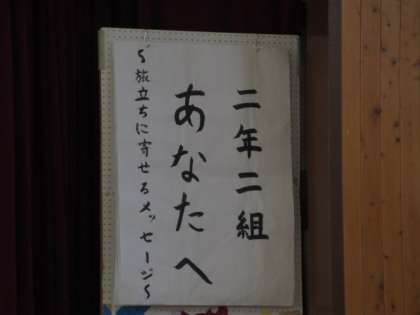 二年二組
あなたへ
~旅立ちに寄せるメッセージ~